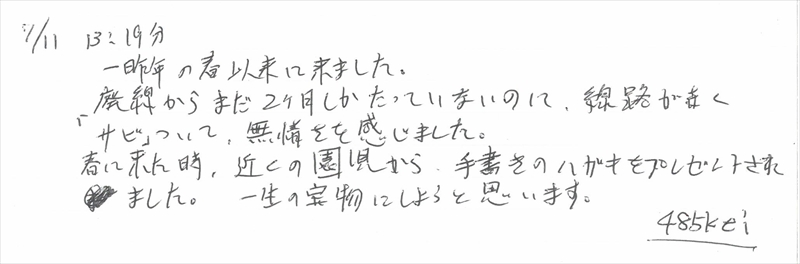 5/11 13:19分
一昨年の春以来に来ました。
廃線からまだ2ヶ月しかたっていないのに、線路が赤く
「サビ」ついて、無情さを感じました。
春に来た時、近くの園児から、手書きのハガキをプレゼントされ
ました。 一生の宝物にしようと思います。
485kei